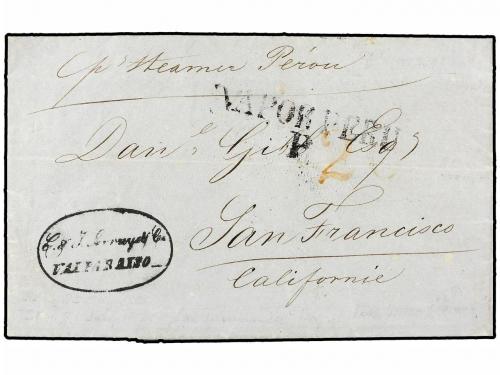 pr Steamer Pérou
VAPOR PERU
P 2
Danl Gibb Esqr
San Francisco
Californie
VALPARAISO